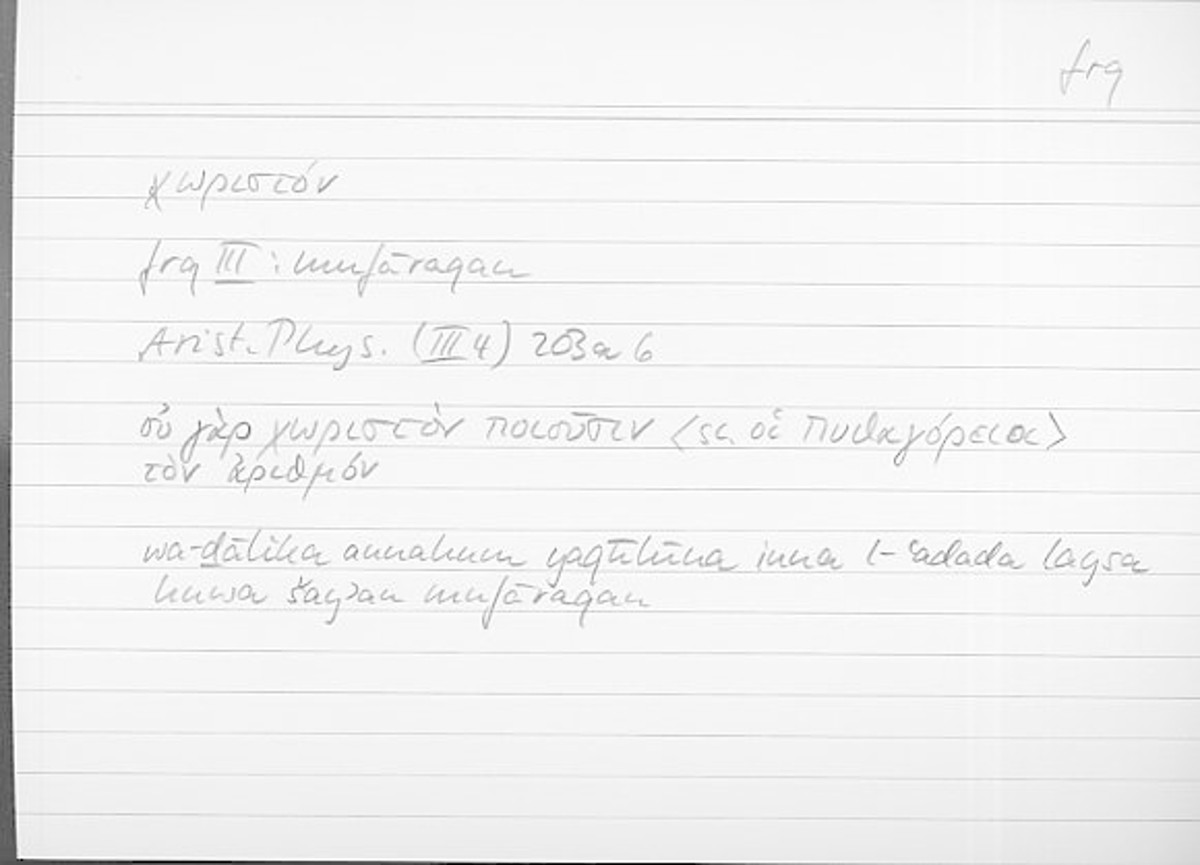 frq
χωριστόν
frq III : mufāraqan
Arist. Phys. (III 4) 203 a 6
οὐ γὰρ χωριστὸν ποιοῦσιν <sc. οἱ Πυθαγόρειοι>
τὸν ἀριθμόν
wa-ḏālika annahum yaqūlūna inna l-ʿadada laysa
huwa šayʾan mufāraqan